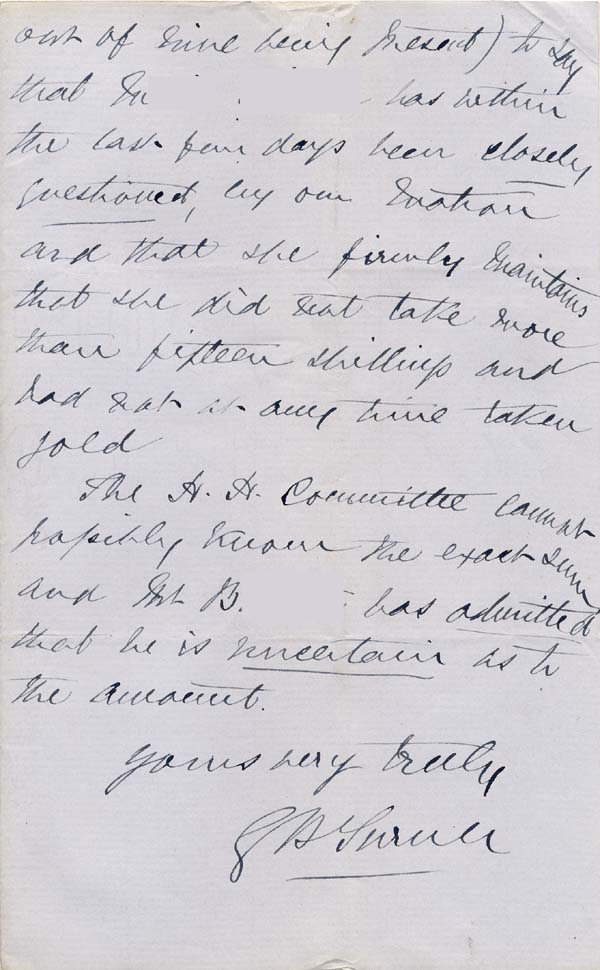 out of nine being present) to say
that M has within
the last few days been closely
questioned, by our Matron
and that she firmly maintains
that she did not take more
than fifteen shillings and
had not at any time taken
gold
The H. H. Committee cannot
possibly know the exact sum
and Mr B. has admitted
that he is uncertain as to
the amount.
Yours very truly
G B Turner